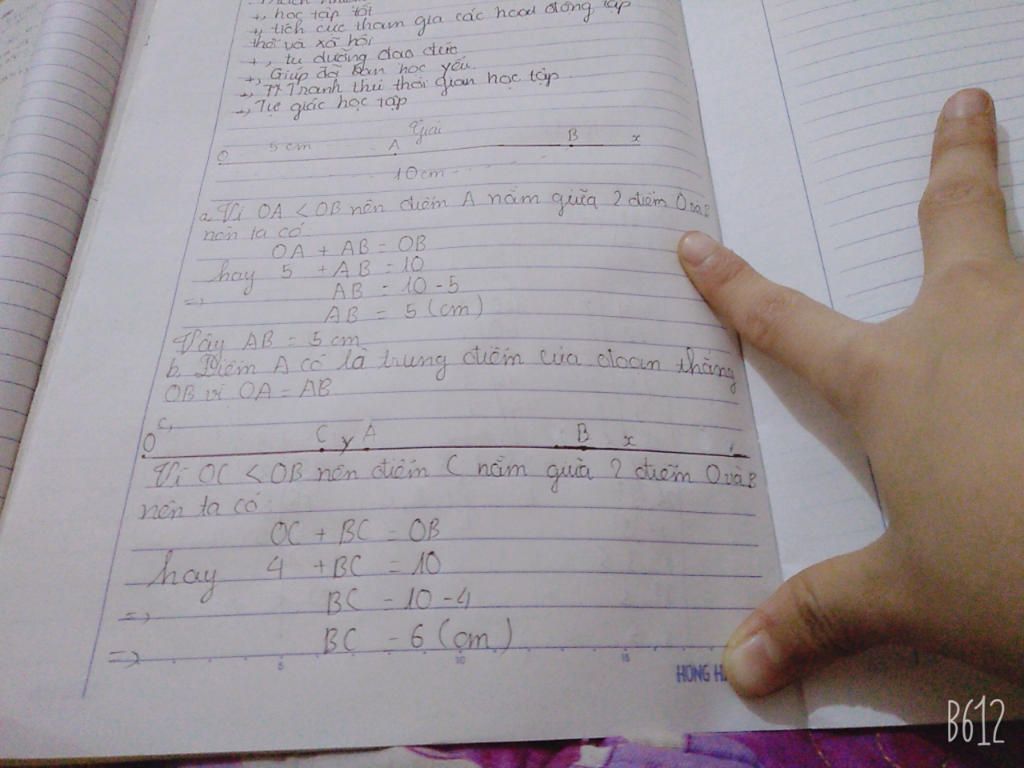 +, học tập tốt
+, tích cực tham gia các hoạt động tập
thể và xã hội
+, tu dưỡng đạo đức
+, Giúp đỡ bạn học yếu
+, Tranh thủ thời gian học tập
+, Tự giác học tập
Giải
O 5 cm A B x
10 cm
a. Vì OA < OB nên điểm A nằm giữa 2 điểm O và B
nên ta có
OA + AB = OB
hay 5 + AB = 10
=> AB = 10 - 5
AB = 5 (cm)
Vậy AB = 5 cm
b. Điểm A có là trung điểm của đoạn thẳng
OB vì OA = AB
c,
O C y A B x
Vì OC < OB nên điểm C nằm giữa 2 điểm O và B
nên ta có
OC + BC = OB
hay 4 + BC = 10
=> BC = 10 - 4
=> BC = 6 (cm)
5 10 15
HONG H
B612